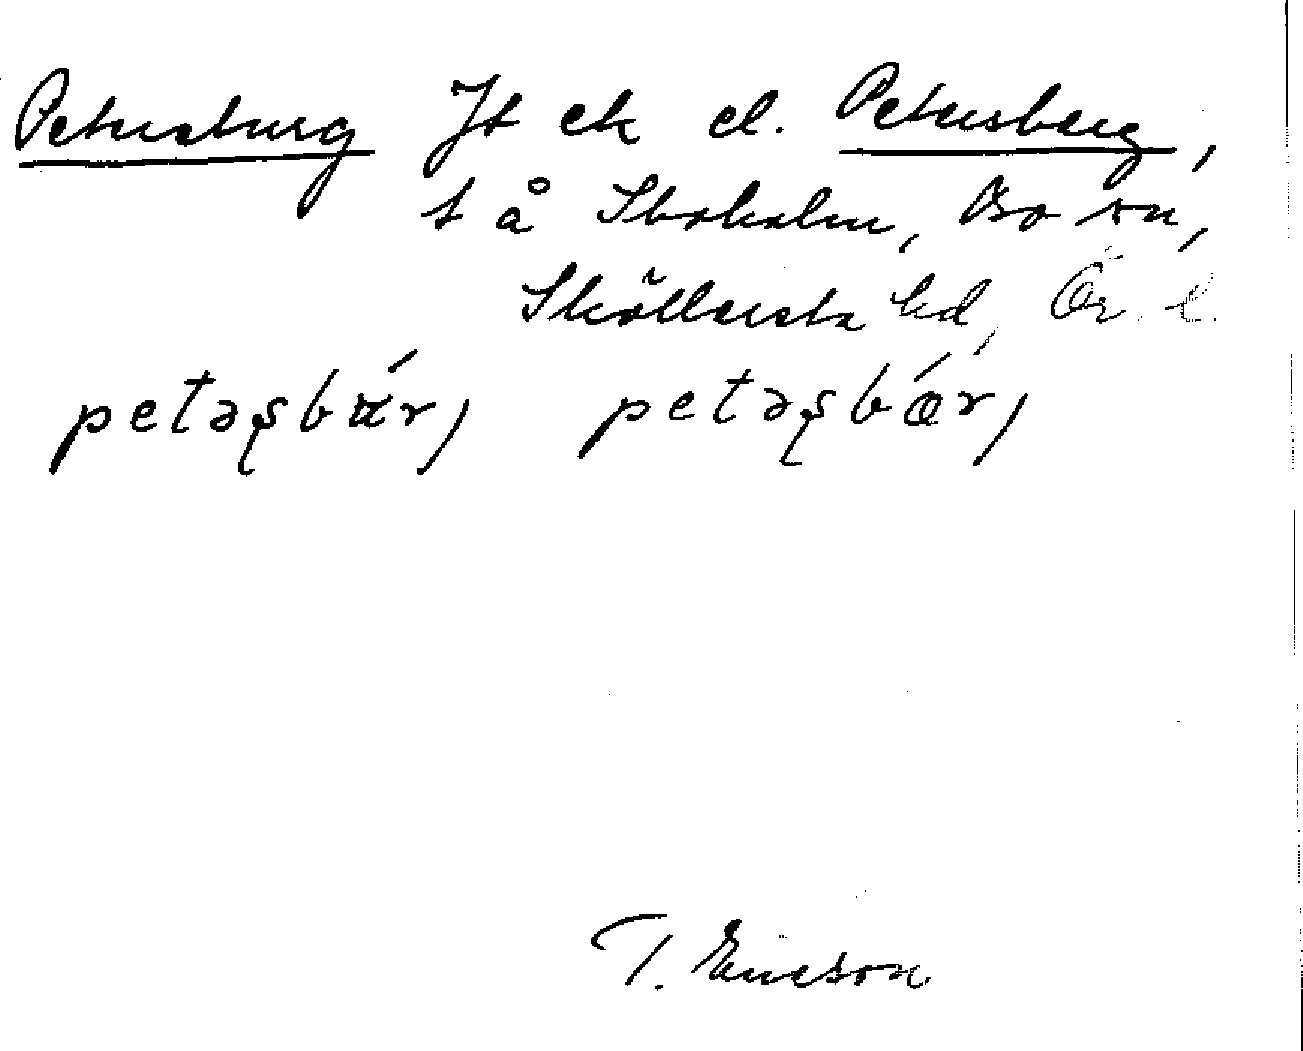 Petersburg Jt ek el. Petersberg,
t å Skoholm, Bo sn,
Sköllersta hd, Ör. l.
petəʂbárj petəʂbǽrj
T. Ericson